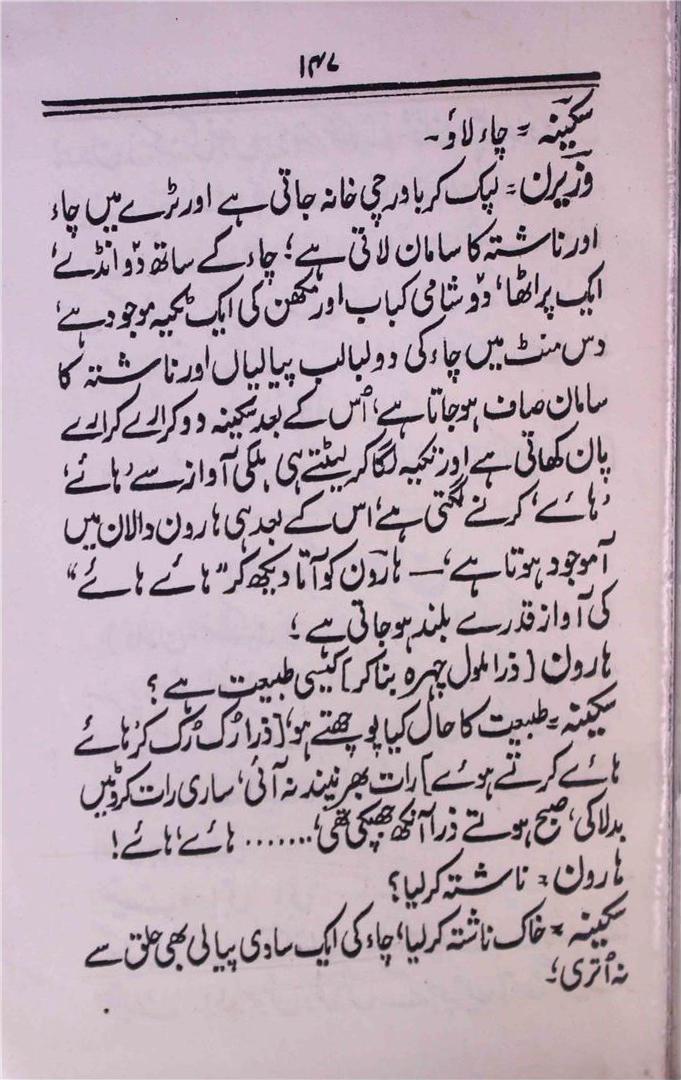 ۱۴۷
سکینہ = چاء لاؤ -
وزیرن = لپک کر باورچی خانہ جاتی ہے اور ٹرے میں چاء
اور ناشتہ کا سامان لاتی ہے؛ چاء کے ساتھ دو انڈے،
ایک پراٹھا، دو شامی کباب اور مکھن کی ایک ٹکیہ موجود ہے،
دس منٹ میں چاء کی دو لبالب پیالیاں اور ناشتہ کا
سامان صاف ہوجاتا ہے، اُس کے بعد سکینہ دو کرارے کرارے
پان کھاتی ہے اور تکیہ لگا کر لیٹتے ہی ہلکی آواز سے ’ہائے‘
’ہائے‘ کرنے لگتی ہے، اس کے بعد ہی ہارون دالان میں
آموجود ہوتا ہے، — ہارون کو آتا دیکھ کر ”ہائے ہائے“
کی آواز قدرے بلند ہوجاتی ہے ؛
ہارون [ذرا ملول چہرہ بنا کر] کیسی طبیعت ہے ؟
سکینہ = طبیعت کا حال کیا پوچھتے ہو، [ذرا رُک رُک کر ہائے
ہائے کرتے ہوئے] رات بھر نیند نہ آئی، ساری رات کروٹیں
بدلا کی، صبح ہوتے ذرا آنکھ جھپکی تھی، ....... ہائے، ہائے !
ہارون = ناشتہ کرلیا؟
سکینہ = خاک ناشتہ کرلیا، چاء کی ایک سادی پیالی بھی حلق سے
نہ اُتری؛